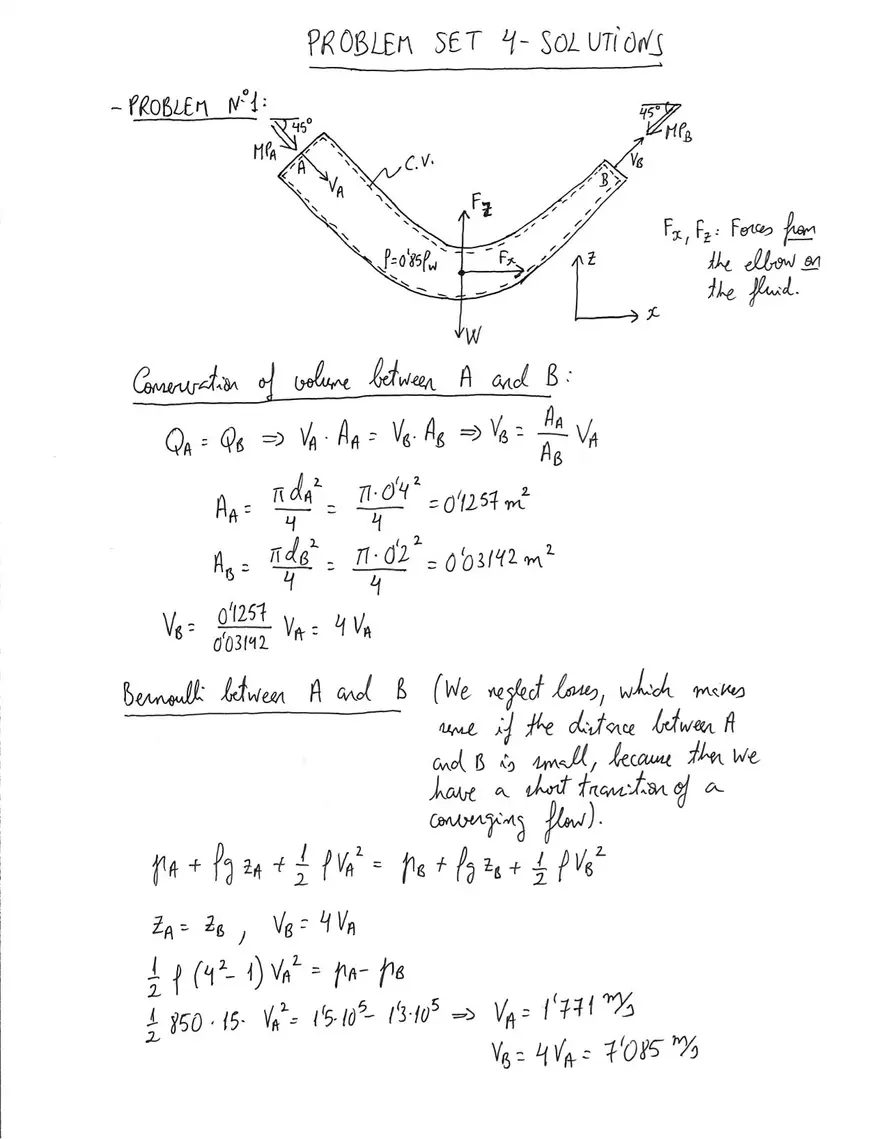 PROBLEM SET 4 - SOLUTIONS
- PROBLEM Nº1:
45°
MPA
A
VA
C.V.
45°
MPB
VB
B
Fz
ρ=0'85ρw
Fx
z
x
W
Fx, Fz: Forces from
the elbow on
the fluid.
Conservation of volume between A and B:
QA = QB => VA · AA = VB · AB => VB = AA/AB VA
AA = πdA²/4 = π·0'4²/4 = 0'1257 m²
AB = πdB²/4 = π·0'2²/4 = 0'03142 m²
VB = 0'1257/0'03142 VA = 4 VA
Bernoulli between A and B (We neglect losses, which makes
sense if the distance between A
and B is small, because then we
have a short transition of a
converging flow).
pA + ρg zA + 1/2 ρVA² = pB + ρg zB + 1/2 ρVB²
zA = zB , VB = 4VA
1/2 ρ (4² - 1) VA² = pA - pB
1/2 850 · 15 · VA² = 1'5·10⁵ - 1'3·10⁵ => VA = 1'771 m/s
VB = 4VA = 7'085 m/s